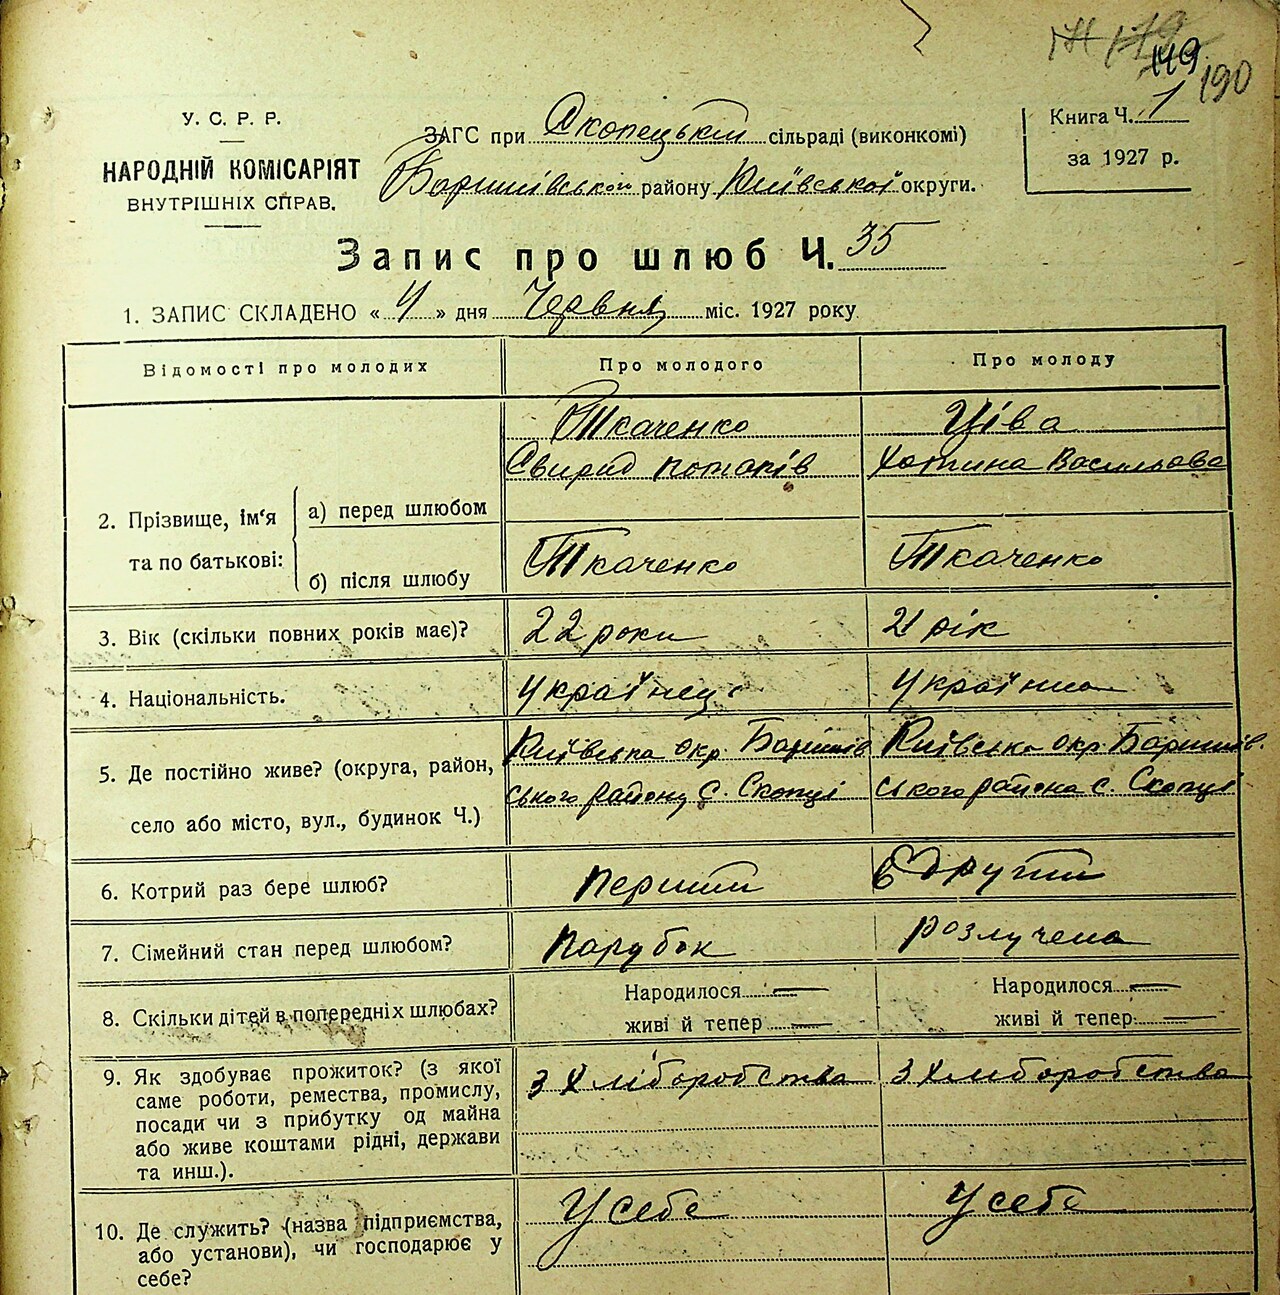 149
190
У. С. Р. Р.
НАРОДНІЙ КОМІСАРІЯТ
ВНУТРІШНІХ СПРАВ.
ЗАГС при Скопецькій сільраді (виконкомі)
Баришівського району Київської округи.
Книга Ч. 1
за 1927 р.
Запис про шлюб Ч. 35
1. ЗАПИС СКЛАДЕНО « 4 » дня Червня міс. 1927 року
Відомості про молодих
Про молодого
Про молоду
2. Прізвище, ім'я
та по батькові:
а) перед шлюбом
Ткаченко
Свирид Потапів
Ціва
Хотина Васильова
б) після шлюбу
Ткаченко
Ткаченко
3. Вік (скільки повних років має)?
22 роки
21 рік
4. Національність.
Українець
Українка
5. Де постійно живе? (округа, район,
село або місто, вул., будинок Ч.)
Київська окр. Баришів
ського району с. Скопці
Київська окр. Баришів.
ського района с. Скопці
6. Котрий раз бере шлюб?
Перший
Другий
7. Сімейний стан перед шлюбом?
Парубок
Розлучена
8. Скільки дітей в попередніх шлюбах?
Народилося —
живі й тепер —
Народилося —
живі й тепер —
9. Як здобуває прожиток? (з якої
саме роботи, ремества, промислу,
посади чи з прибутку од майна
або живе коштами рідні, держави
та инш.).
З Хліборобства
З Хліборобства
10. Де служить? (назва підприємства,
або установи), чи господарює у
себе?
У себе
У себе